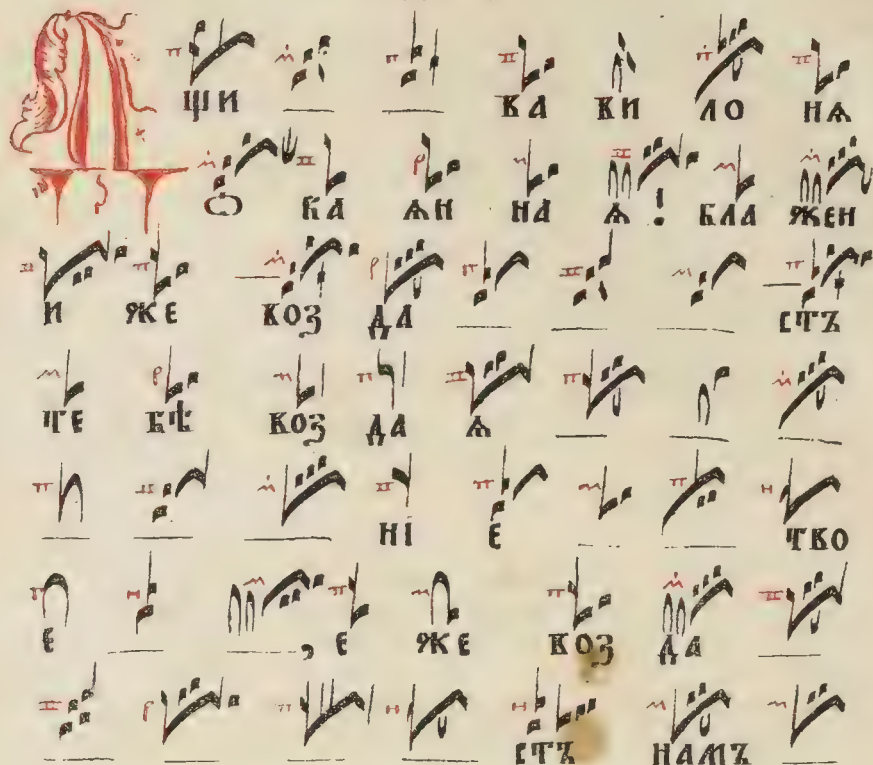 Д ЩИ ВА ВИ ЛО НѦ
Ѡ КА ѦН НА Ѧ ! БЛА ЖЕН
И ЖЕ ВОЗ ДА СТЪ
ТЕ БѢ ВОЗ ДА Ѧ
НІ Е ТВО
Е , Е ЖЕ ВОЗ ДА
СТЪ НАМЪ